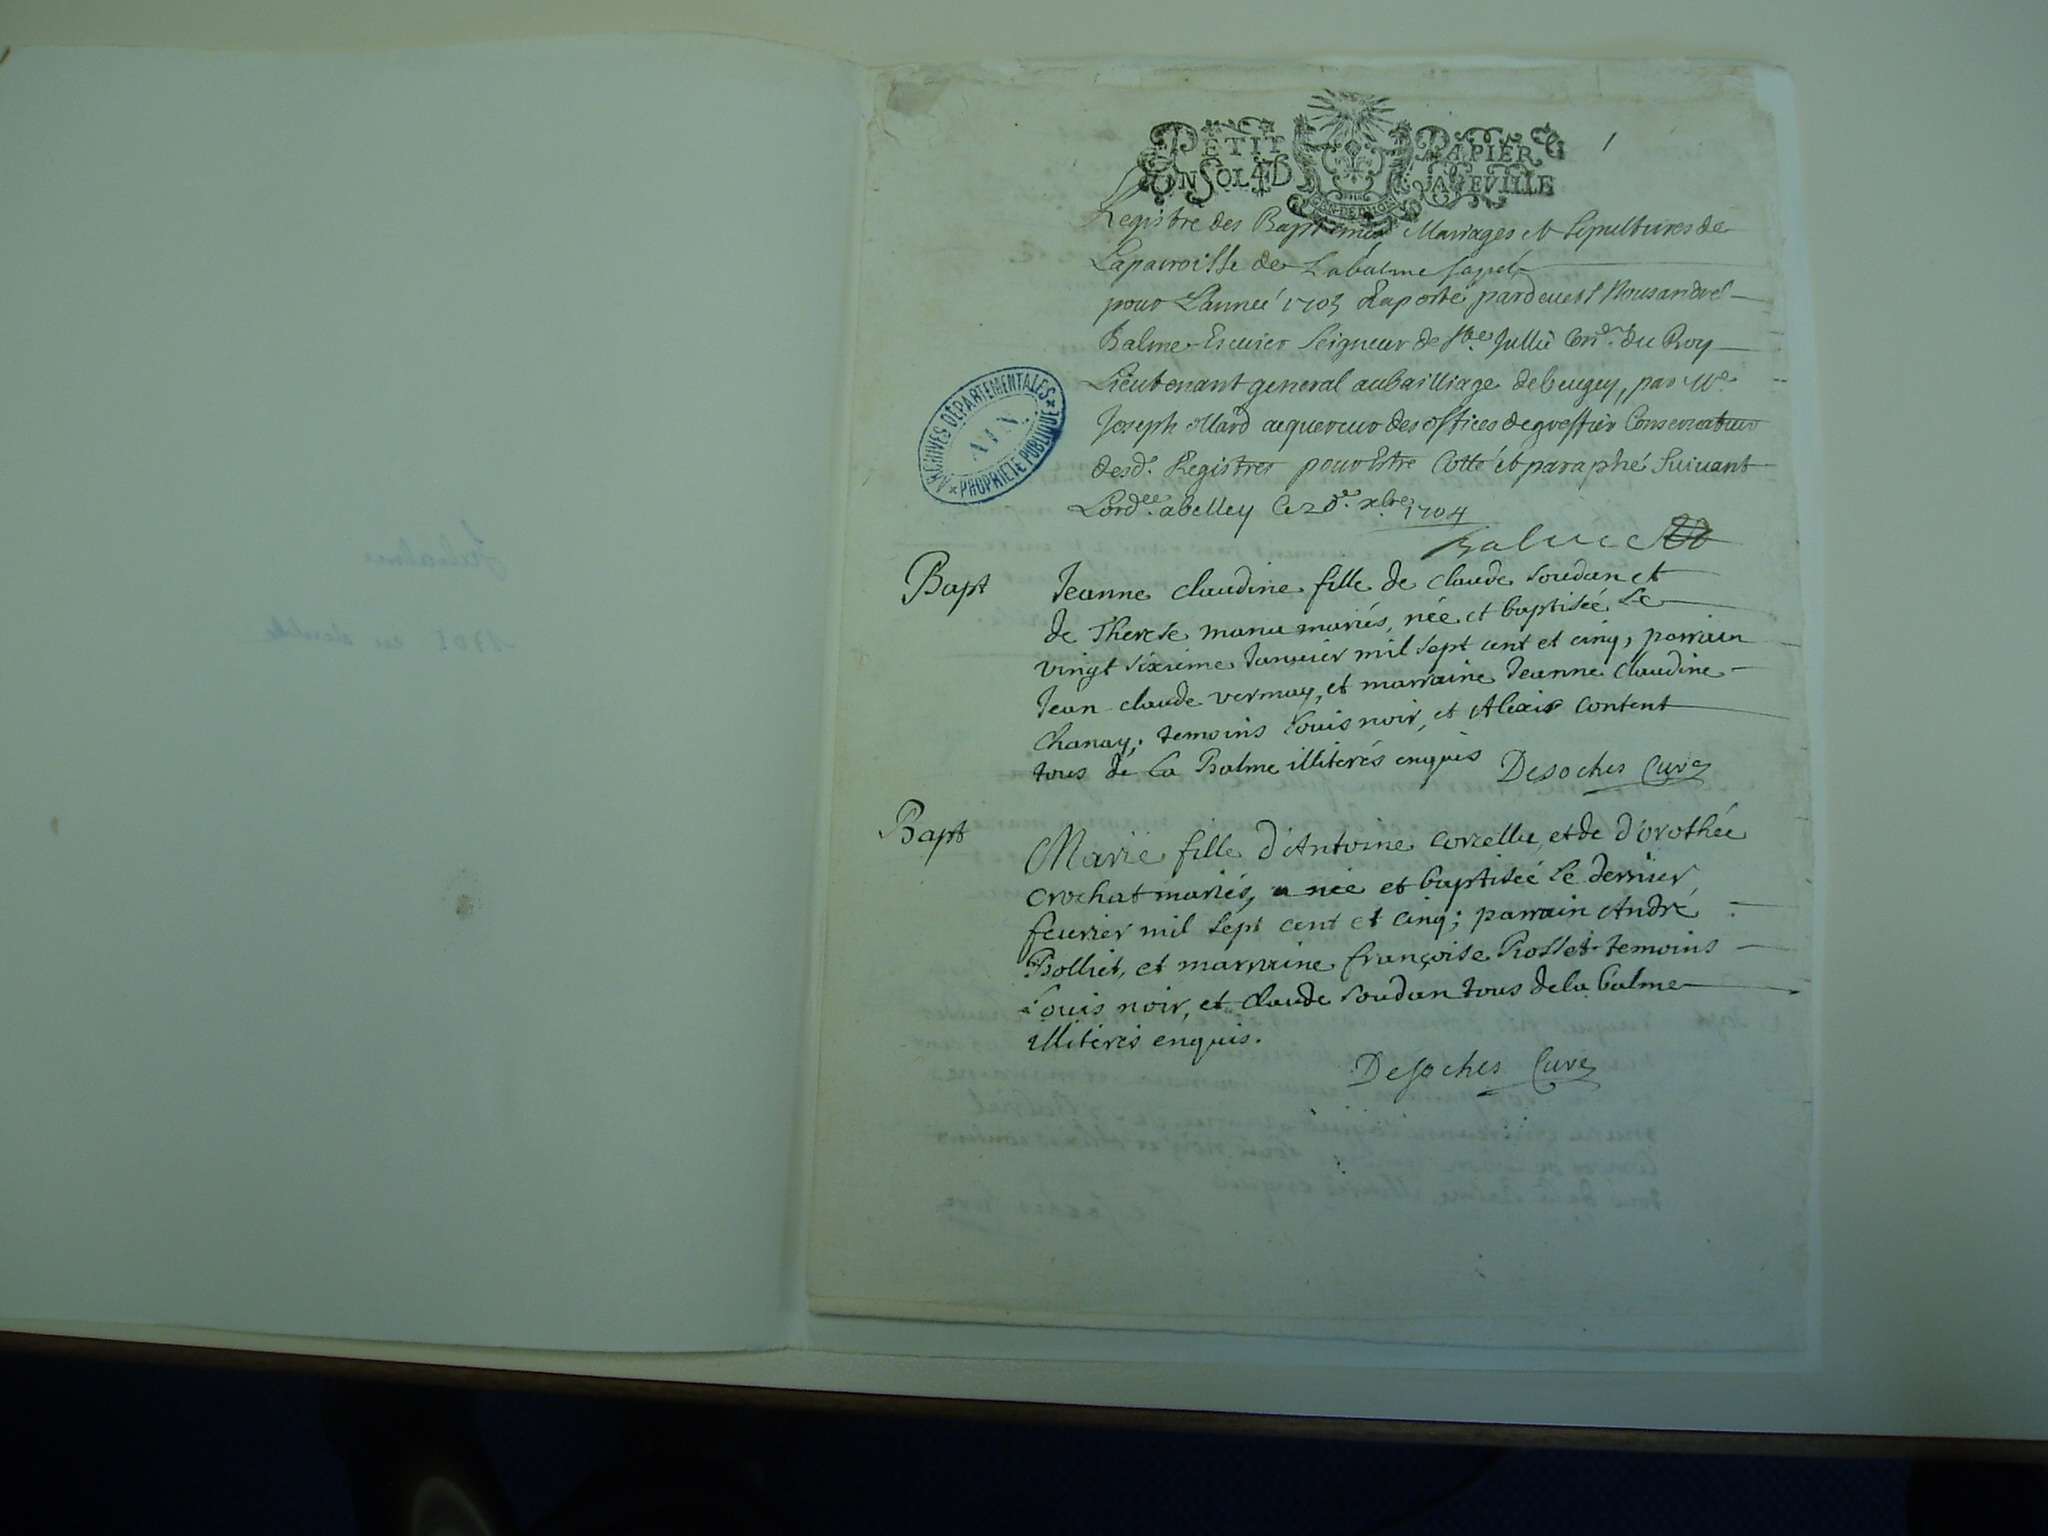 PETIT PAPIER
UN SOL 4 D LA FEVILLE
1
GEN. DE DIJON
Registre des Baptemes Mariages et Sepultures de
Laparoisse de Labalme sapel
pour Lanneé 1705 Raporté pardeuest Nous andré
Balme Escuier Seigneur de Ste Jullie Con.er du Roy
Lieutenant general aubailliage debeugey, par Me
Joseph ollard acquereur des offices de greffier Conseruateur
desd. Registres pour Estre Cotté et paraphé suiuant
Lord.ce abelley Ce xbre 1704
Balme
ARCHIVES DÉPARTEMENTALES
AIN
PROPRIÉTÉ PUBLIQUE
Bapt
Jeanne claudine fille de claude soudan et
de Therese manu mariés, née et baptiseé Le
vingt sixieme Januier mil sept cent et cinq, parrain
Jean claude vermay, et marraine Jeanne claudine
Chanay; temoins Louis noir, et Alexis content
tous de La Balme illiterés enquis Desoches Curé
Bapt
Marie fille d'Antoine corcellu, et de d'orothée
crochat mariés, née et baptiseé Le dernier
feurier mil sept cent et cinq; parrain André
Bolliet, et marraine françoise Rosset temoins
Louis noir, et claude soudan tous de la balme
illiterés enquis.
Desoches Curé